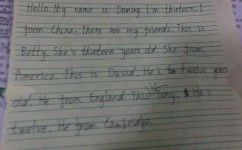 Hello. My name is Daming. I'm thirteen. I
form China. There are my friends. This is
Betty. She's thirteen years old. She from
America. This is David. He's twelve years
old. He from England. This Tony. He's
twelve. He from Cambridge.